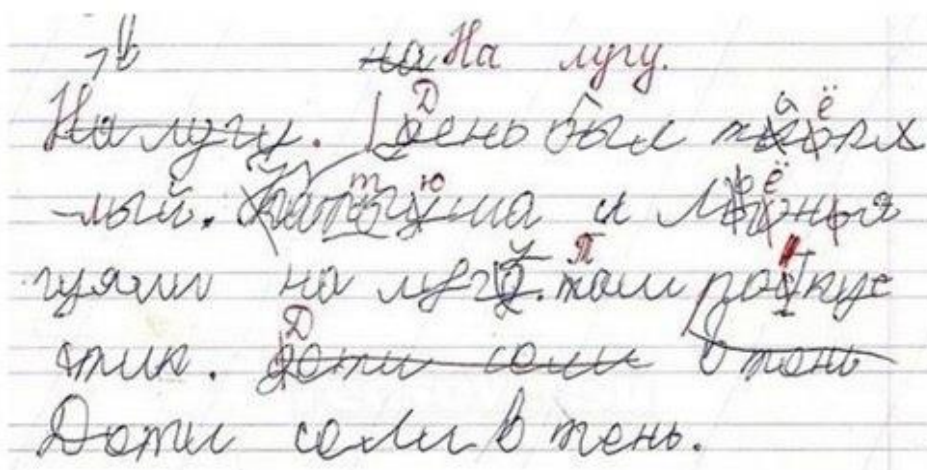 на На лугу.
На лугу. День был тёпл
-лый. и Лёня
гуляли на лугу. там рос куст
-тик. дети сели в тень
Дети сели в тень.